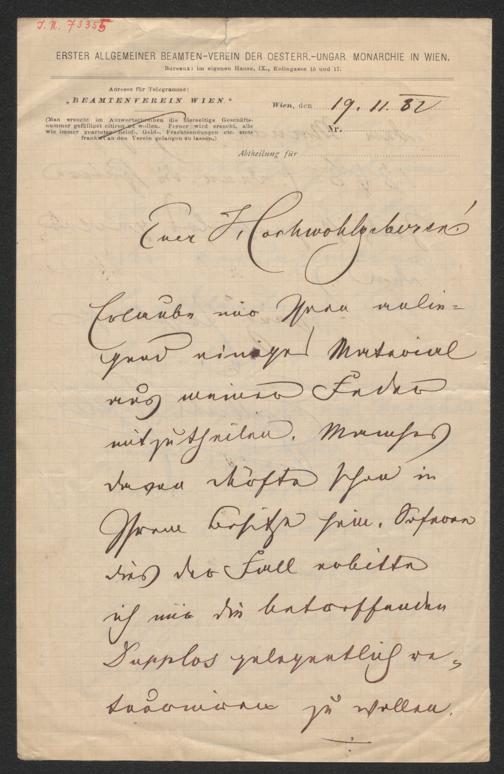 J. N. 73355
ERSTER ALLGEMEINER BEAMTEN-VEREIN DER OESTERR.-UNGAR. MONARCHIE IN WIEN.
Bureaux: im eigenen Hause, IX., Kolingasse 15 und 17.
Adresse für Telegramme:
„BEAMTENVEREIN WIEN.“
(Man ersucht im Antwortschreiben die diesseitige Geschäfts-
nummer gefälligst citiren zu wollen. Ferner wird ersucht, alle
wie immer gearteten Brief-, Geld-, Frachtsendungen etc. stets
frankirt an den Verein gelangen zu lassen.)
Wien, den 19. 11. 82
Nr.
Abtheilung für
Euer Hochwohlgeboren!
Erlaube mir Ihnen anlie-
gend einiges Material
aus meiner Feder
mitzutheilen. Manches
davon dürfte schon in
Ihrem Besitze sein. Soferne
dies der Fall erbitte
ich mir die betreffenden
Dupplos gelegentlich re-
tourniren zu wollen.